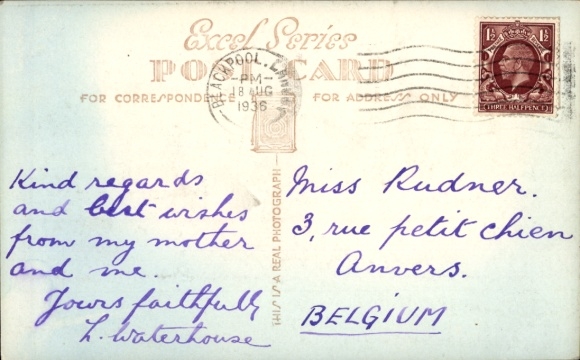 Excel Series
POST CARD
FOR CORRESPONDENCE
FOR ADDRESS ONLY
BLACKPOOL. LANCS.
PM
18 AUG
1936
1½ 1½
THREE HALFPENCE
Kind regards
and best wishes
from my mother
and me.
Yours faithfully
L. Waterhouse
THIS IS A REAL PHOTOGRAPH
Miss Rudner.
3, rue petit chien
Anvers.
BELGIUM